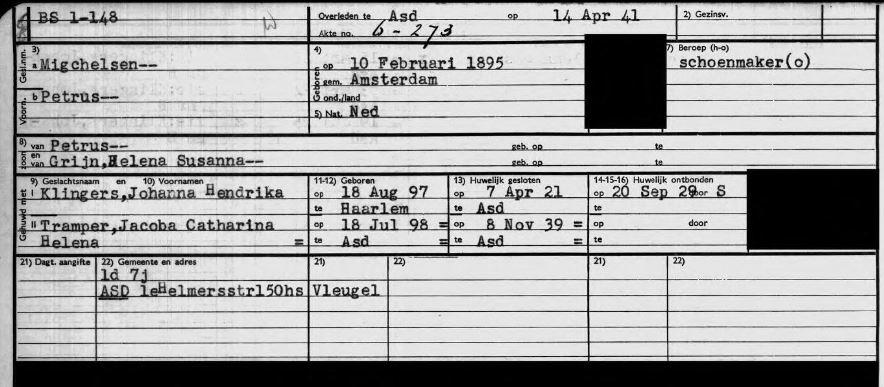 BS 1-148 Overleden te Asd op 14 Apr 41 2) Gezinsv.
Akte no. 6-273
Gesl.nm. 3) a Migchelsen-- 4) Geboren op 10 Februari 1895 7) Beroep (h-o)
gem. Amsterdam schoenmaker(o)
Voorn. b Petrus-- ond./land
5) Nat. Ned
8) zoon van Petrus-- geb. op te
en van Grijn,Helena Susanna-- geb. op te
Gehuwd met 9) Geslachtsnaam en 10) Voornamen 11-12) Geboren 13) Huwelijk gesloten 14-15-16) Huwelijk ontbonden
I Klingers,Johanna Hendrika op 18 Aug 97 op 7 Apr 21 op 20 Sep 29 door S
te Haarlem te Asd te
II Tramper,Jacoba Catharina op 18 Jul 98 = op 8 Nov 39 = op door
Helena = te Asd = te Asd = te
21) Dagt. aangifte 22) Gemeente en adres 21) 22) 21) 22)
ld 7j
ASD 1eHelmersstr150hs Vleugel